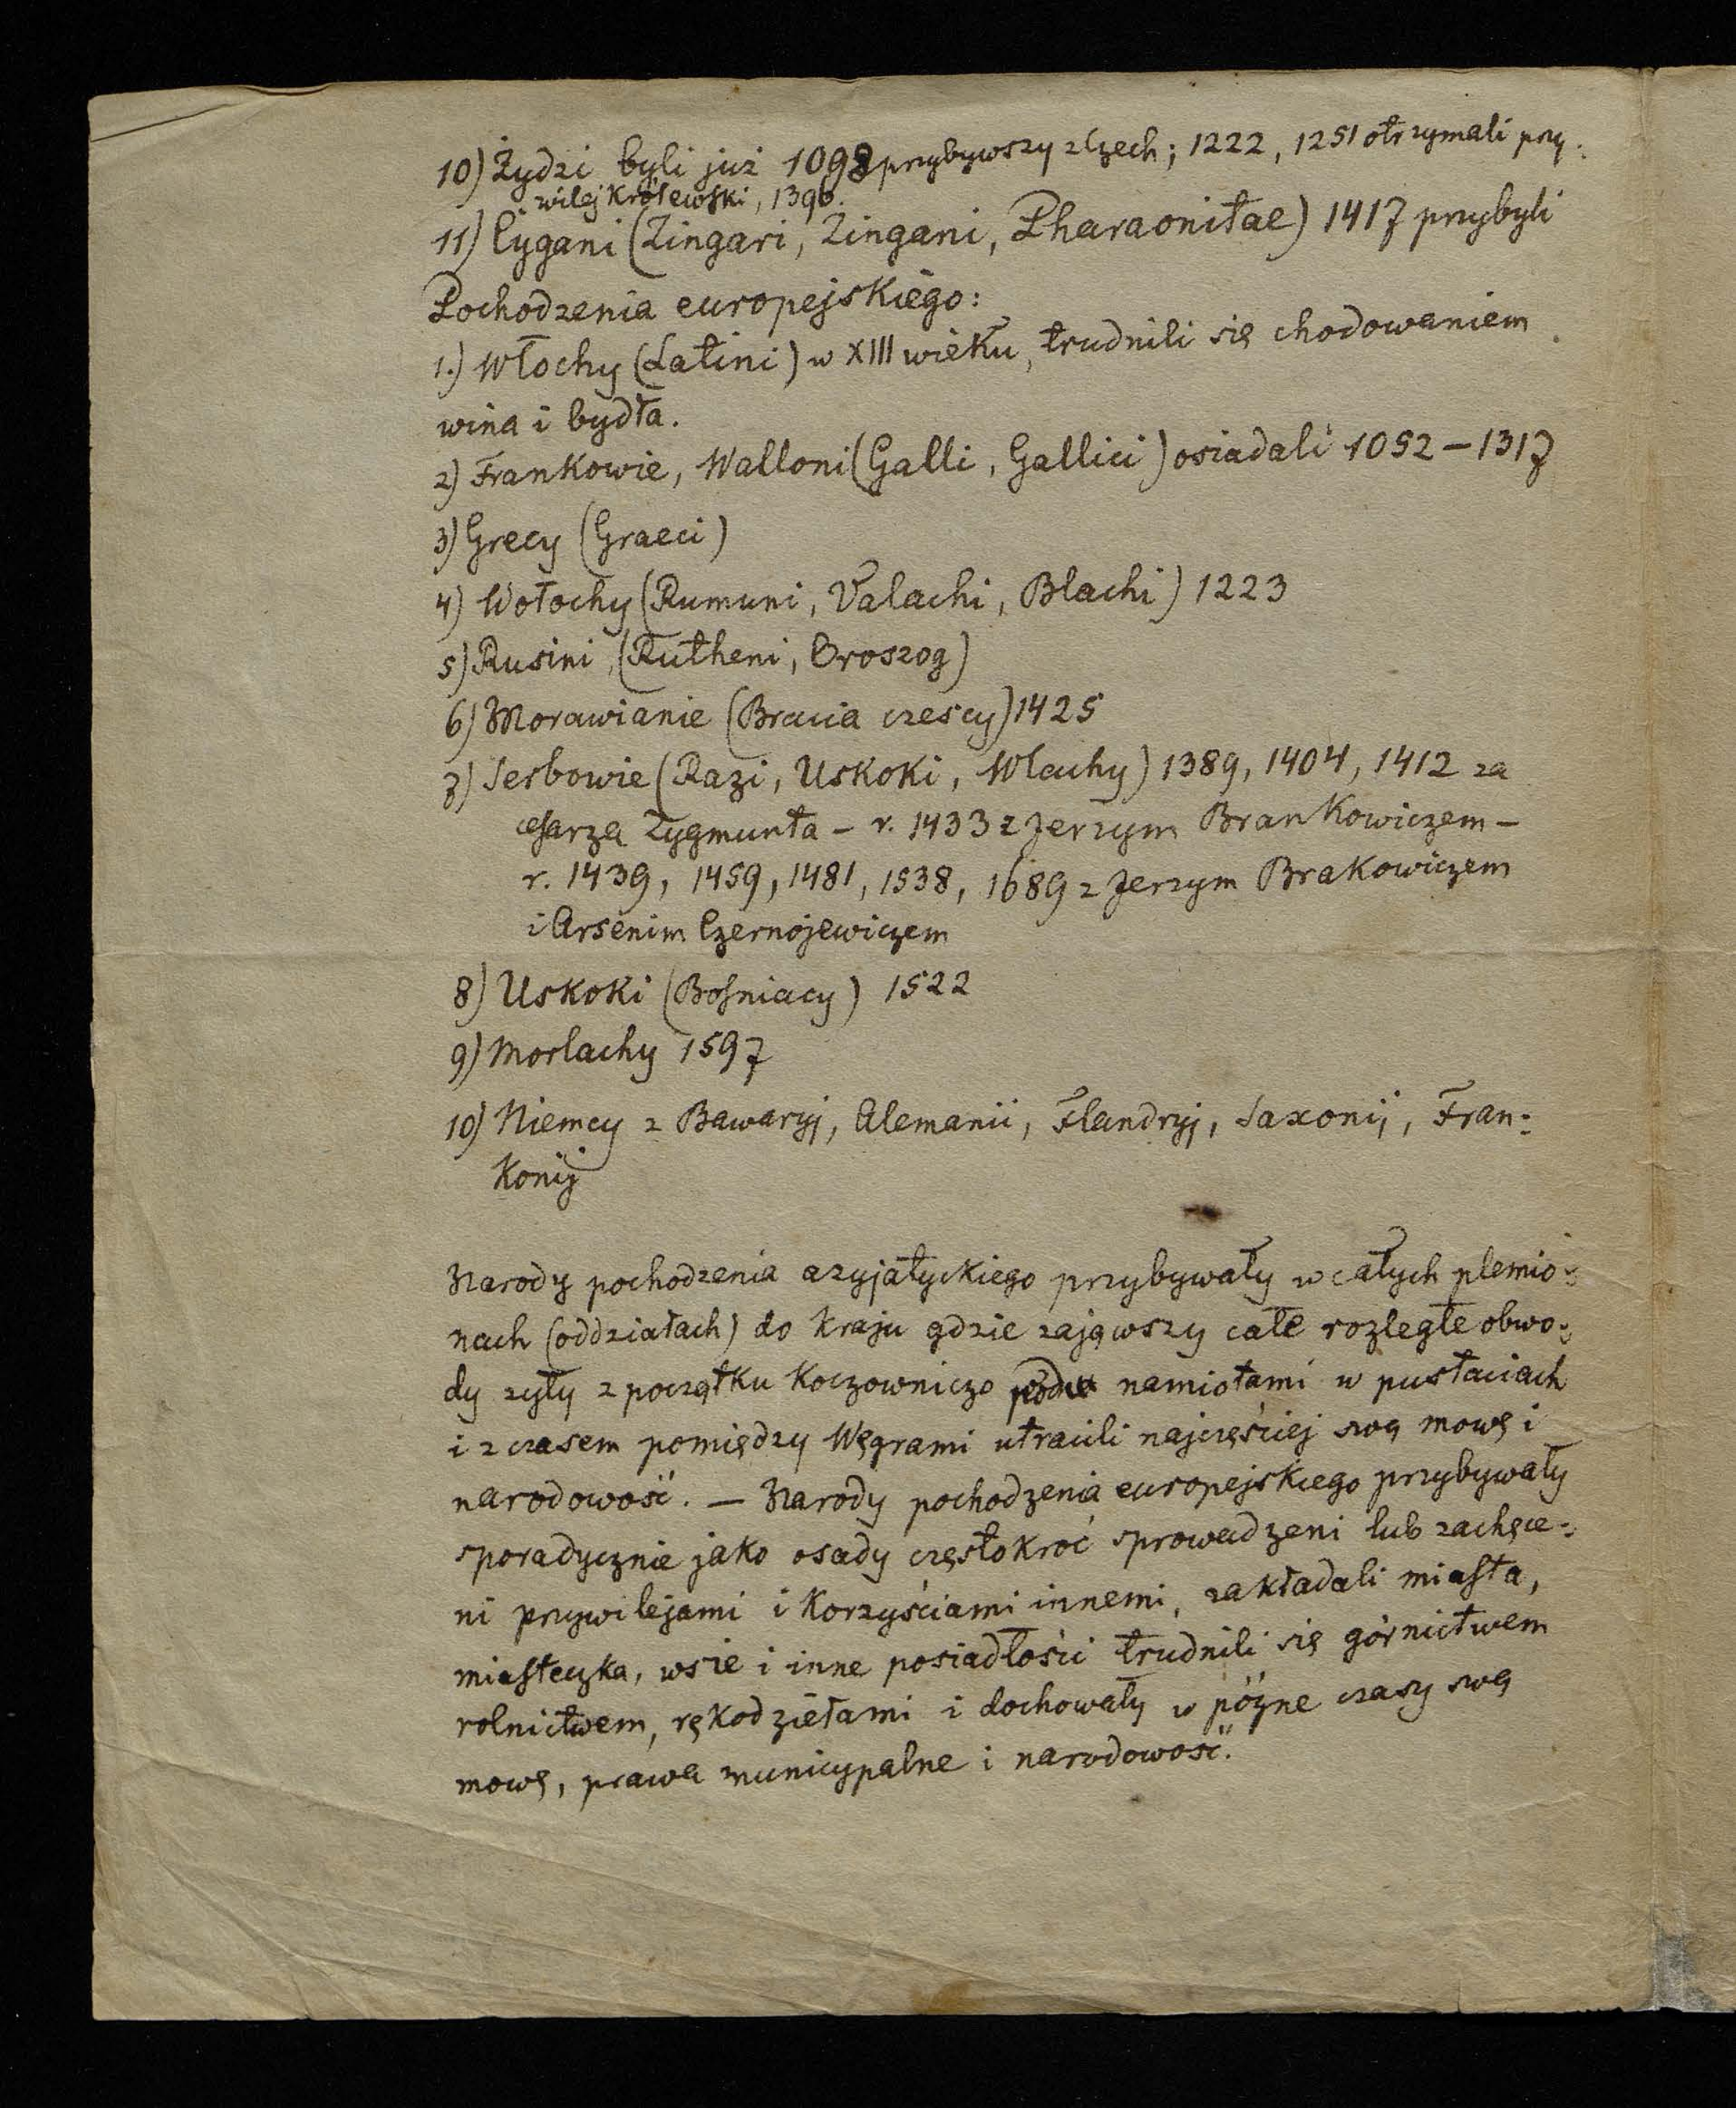 10) Żydzi byli już 1098 przybywszy z Czech; 1222, 1251 otrzymali przy-
wilej Królewski, 1396.
11) Cygani (Zingari, Zingani, Pharaonitae) 1417 przybyli
Pochodzenia europejskiego:
1.) Włochy (Latini) w XIII wieku, trudnili się chodowaniem
wina i bydła.
2) Frankowie, Walloni (Galli, Gallici) osiadali 1052 – 1317
3) Grecy (Graeci)
4) Wołochy (Rumuni, Valachi, Blachi) 1223
5) Rusini (Rutheni, Oroszog)
6) Morawianie (Bracia czescy) 1425
7) Serbowie (Razi, Uskoki, Wlachy) 1389, 1404, 1412 za
cesarza Zygmunta – r. 1433 z Jerzym Brankowiczem –
r. 1439, 1459, 1481, 1538, 1689 z Jerzym Brakowiczem
i Arsenim Czernojewiczem
8) Uskoki (Bosniacy) 1522
9) Morlachy 1597
10) Niemcy z Bawaryj, Alemanii, Flandryj, Saxonij, Fran-
Konij
Narody pochodzenia azyjatyckiego przybywały w całych plemio-
nach (oddziałach) do Kraju gdzie zająwszy całe rozległe obwo-
dy żyły z początku Koczowniczo pod namiotami w pustaciach
i z czasem pomiędzy Węgrami utracili najczęściej swą mowę i
narodowość. – Narody pochodzenia europejskiego przybywały
sporadycznie jako osady częstokroć sprowadzeni lub zachęce-
ni przywilejami i Korzyściami innemi, zakładali miasta,
miasteczka, wsie i inne posiadłości trudnili się górnictwem
rolnictwem, rękodziełami i dochowały w póżne czasy swą
mowę, prawa municypalne i narodowość.